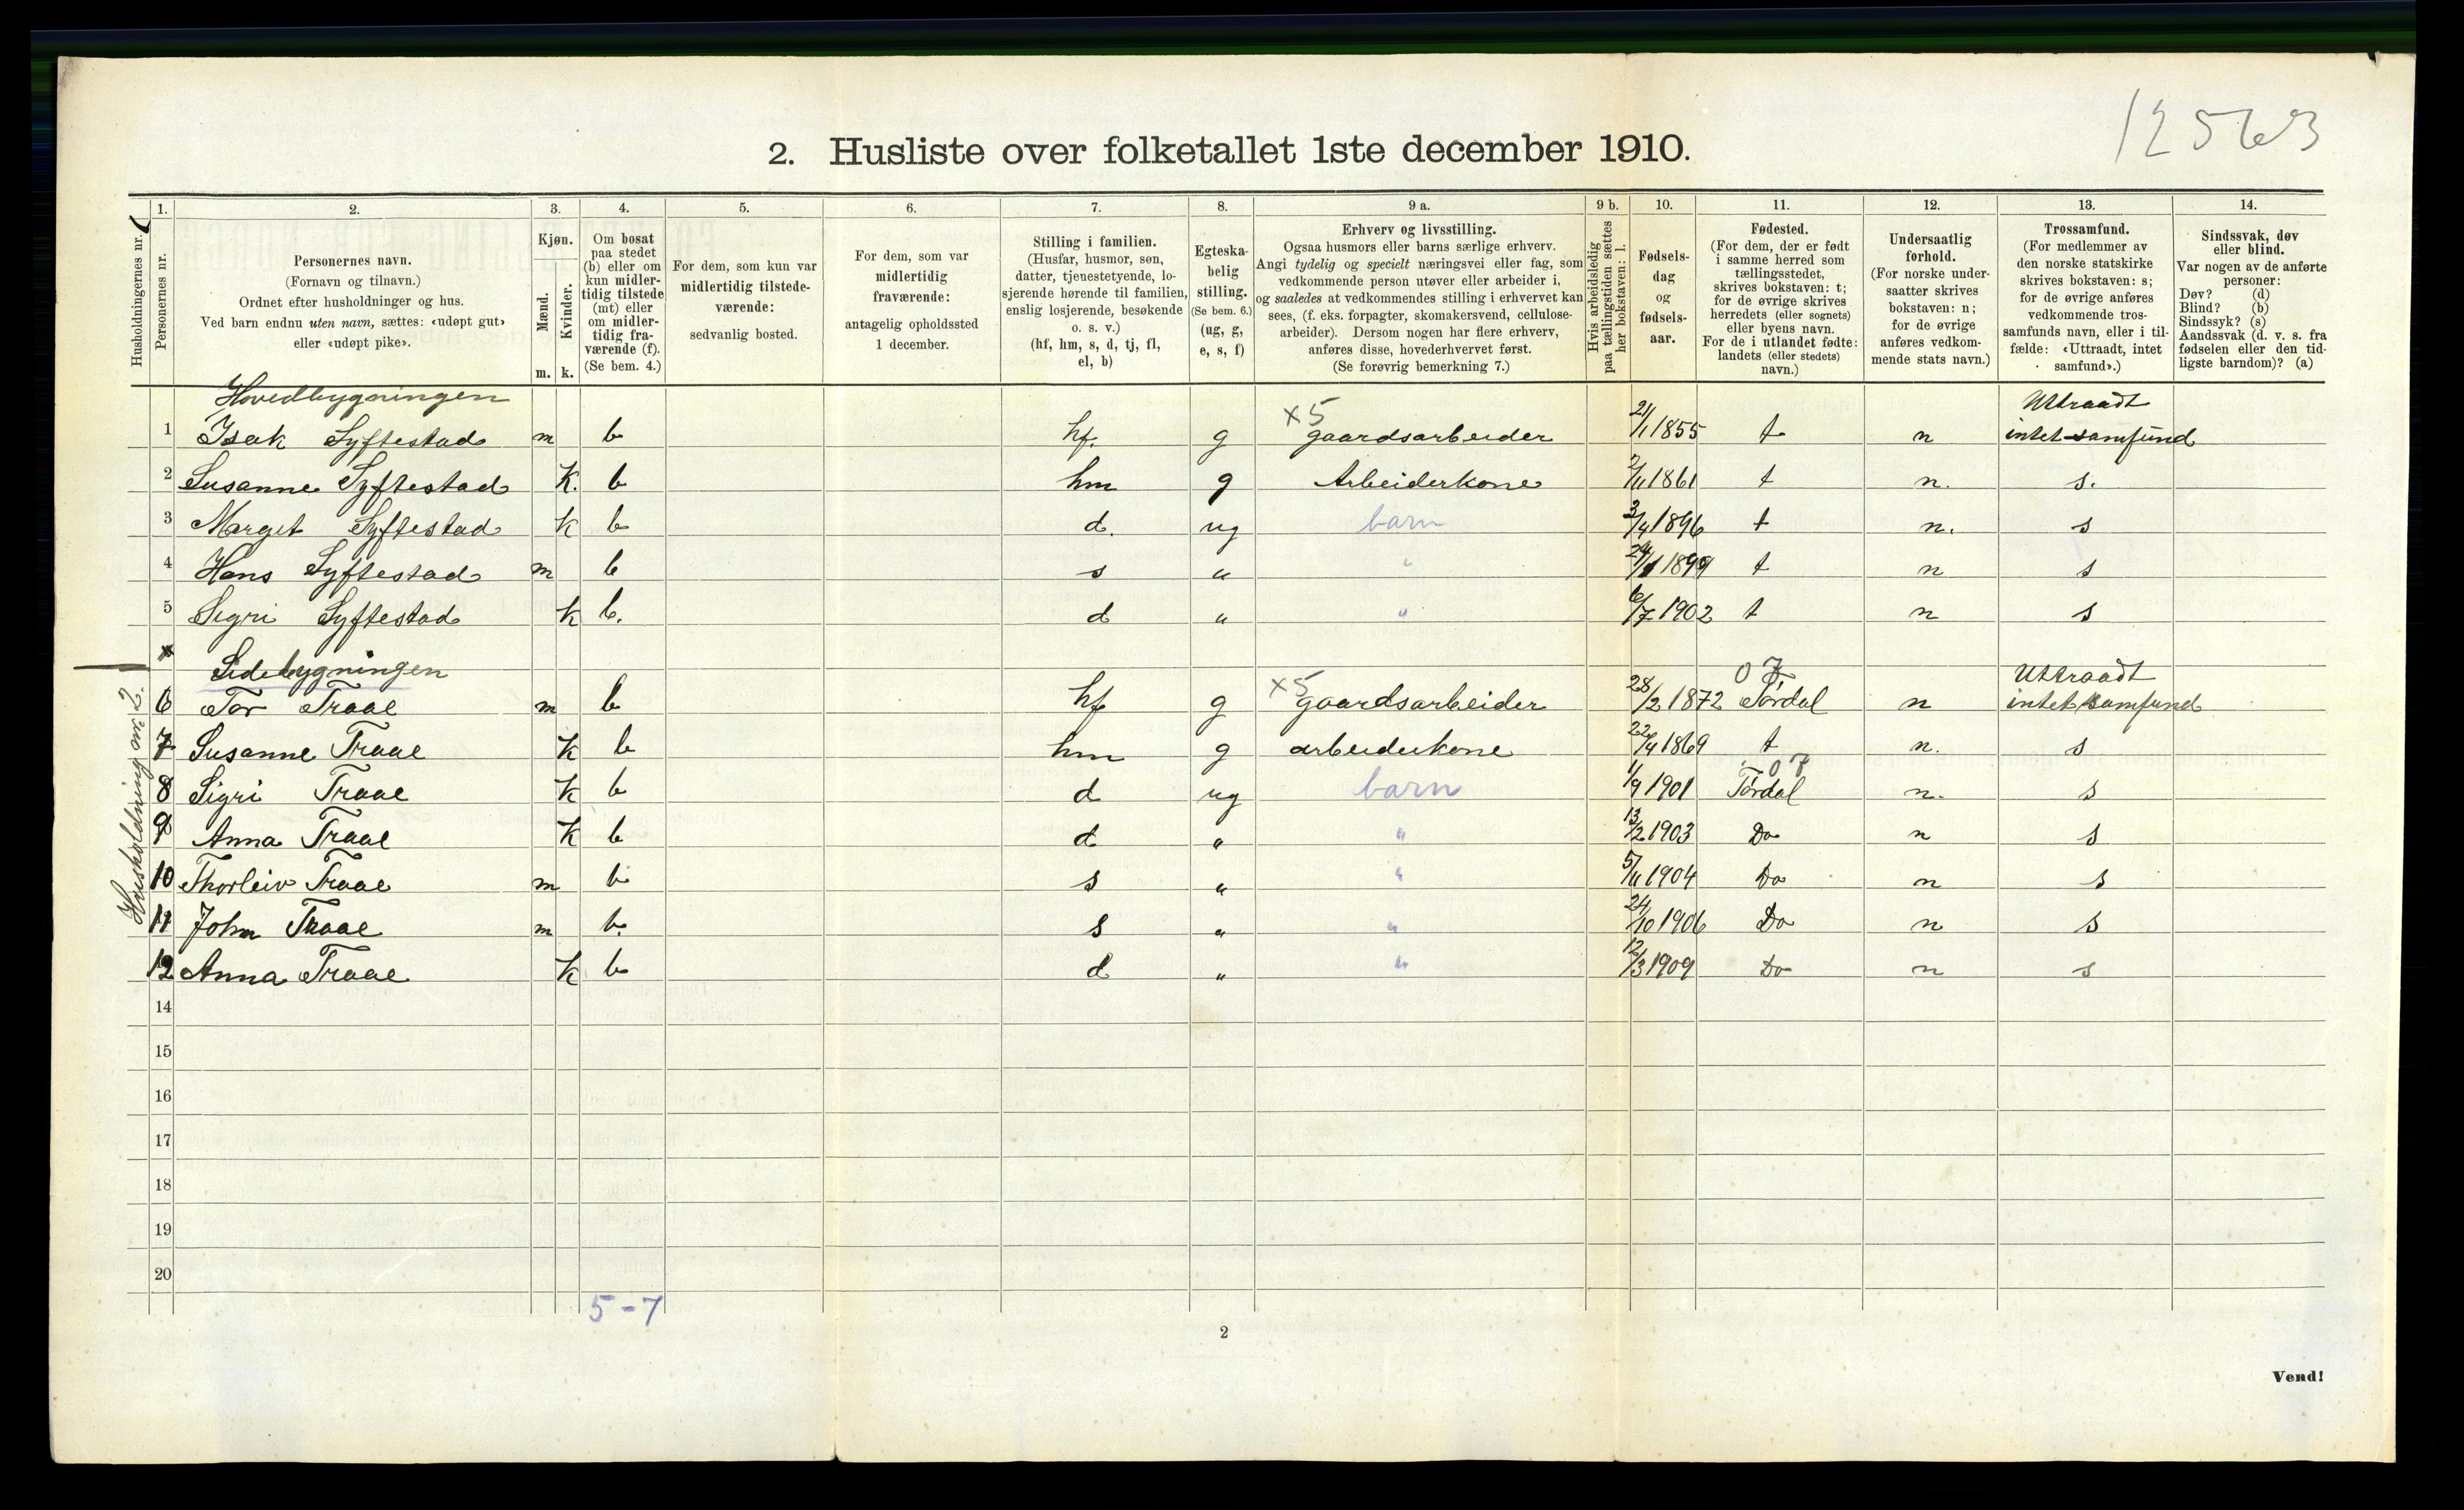 12563
2. Husliste over folketallet 1ste december 1910.
1. 2. 3. 4. 5. 6. 7. 8. 9 a. 9 b. 10. 11. 12. 13. 14.
Husholdningernes nr.
Personernes nr.
Personernes navn.
(Fornavn og tilnavn.)
Ordnet efter husholdninger og hus.
Ved barn endnu uten navn, sættes: «udøpt gut»
eller «udøpt pike».
Kjøn.
Mænd.
Kvinder.
m. k.
Om bosat
paa stedet
(b) eller om
kun midler-
tidig tilstede
(mt) eller
om midler-
tidig fra-
værende (f).
(Se bem. 4.)
For dem, som kun var
midlertidig tilstede-
værende:
sedvanlig bosted.
For dem, som var
midlertidig
fraværende:
antagelig opholdssted
1 december.
Stilling i familien.
(Husfar, husmor, søn,
datter, tjenestetyende, lo-
sjerende hørende til familien,
enslig losjerende, besøkende
o. s. v.)
(hf, hm, s, d, tj, fl,
el, b)
Egteska-
belig
stilling.
(Se bem. 6.)
(ug, g,
e, s, f)
Erhverv og livsstilling.
Ogsaa husmors eller barns særlige erhverv.
Angi tydelig og specielt næringsvei eller fag, som
vedkommende person utøver eller arbeider i,
og saaledes at vedkommendes stilling i erhvervet kan
sees, (f. eks. forpagter, skomakersvend, cellulose-
arbeider). Dersom nogen har flere erhverv,
anføres disse, hovederhvervet først.
(Se forøvrig bemerkning 7.)
Hvis arbeidsledig
paa tællingstiden sættes
her bokstaven: l.
Fødsels-
dag
og
fødsels-
aar.
Fødested.
(For dem, der er født
i samme herred som
tællingsstedet,
skrives bokstaven: t;
for de øvrige skrives
herredets (eller sognets)
eller byens navn.
For de i utlandet fødte:
landets (eller stedets)
navn.)
Undersaatlig
forhold.
(For norske under-
saatter skrives
bokstaven: n;
for de øvrige
anføres vedkom-
mende stats navn.)
Trossamfund.
(For medlemmer av
den norske statskirke
skrives bokstaven: s;
for de øvrige anføres
vedkommende tros-
samfunds navn, eller i til-
fælde: «Uttraadt, intet
samfund».)
Sindssvak, døv
eller blind.
Var nogen av de anførte
personer:
Døv? (d)
Blind? (b)
Sindssyk? (s)
Aandssvak (d. v. s. fra
fødselen eller den tid-
ligste barndom)? (a)
Hovedbygningen ×5 Uttraadt
1 Isak Syftestad m b hf. g gaardsarbeider 21/1 1855 t n intet samfund
2 Susanne Syftestad K. b hm g Arbeiderkone 2/11 1861 t n. s.
3 Marget Syftestad K b d. ug barn 3/4 1896 t n. s
4 Hans Syftestad m b s " " 29/1 1899 t n s
5 Sigri Syftestad K b. d " " 6/7 1902 t n s
Sidebygningen ×5 07 Uttraadt
Husholdning nr. 2.
6 Tor Traae m b hf g gaardsarbeider 28/2 1872 Tørdal n intet samfund
7 Susanne Traae K b hm g arbeiderkone 22/4 1869 t n. s
07
8 Sigri Traae K b d ug barn 1/9 1901 Tørdal n. s
9 Anna Traae K b d " " 13/2 1903 Do n s
10 Thorleiv Traae m b s " " 5/11 1904 Do n s
11 John Traae m b. s " " 24/10 1906 Do n s
12 Anna Traae K b d " " 12/3 1909 Do n s
14
15
16
17
18
19
20
5-7
2
Vend!